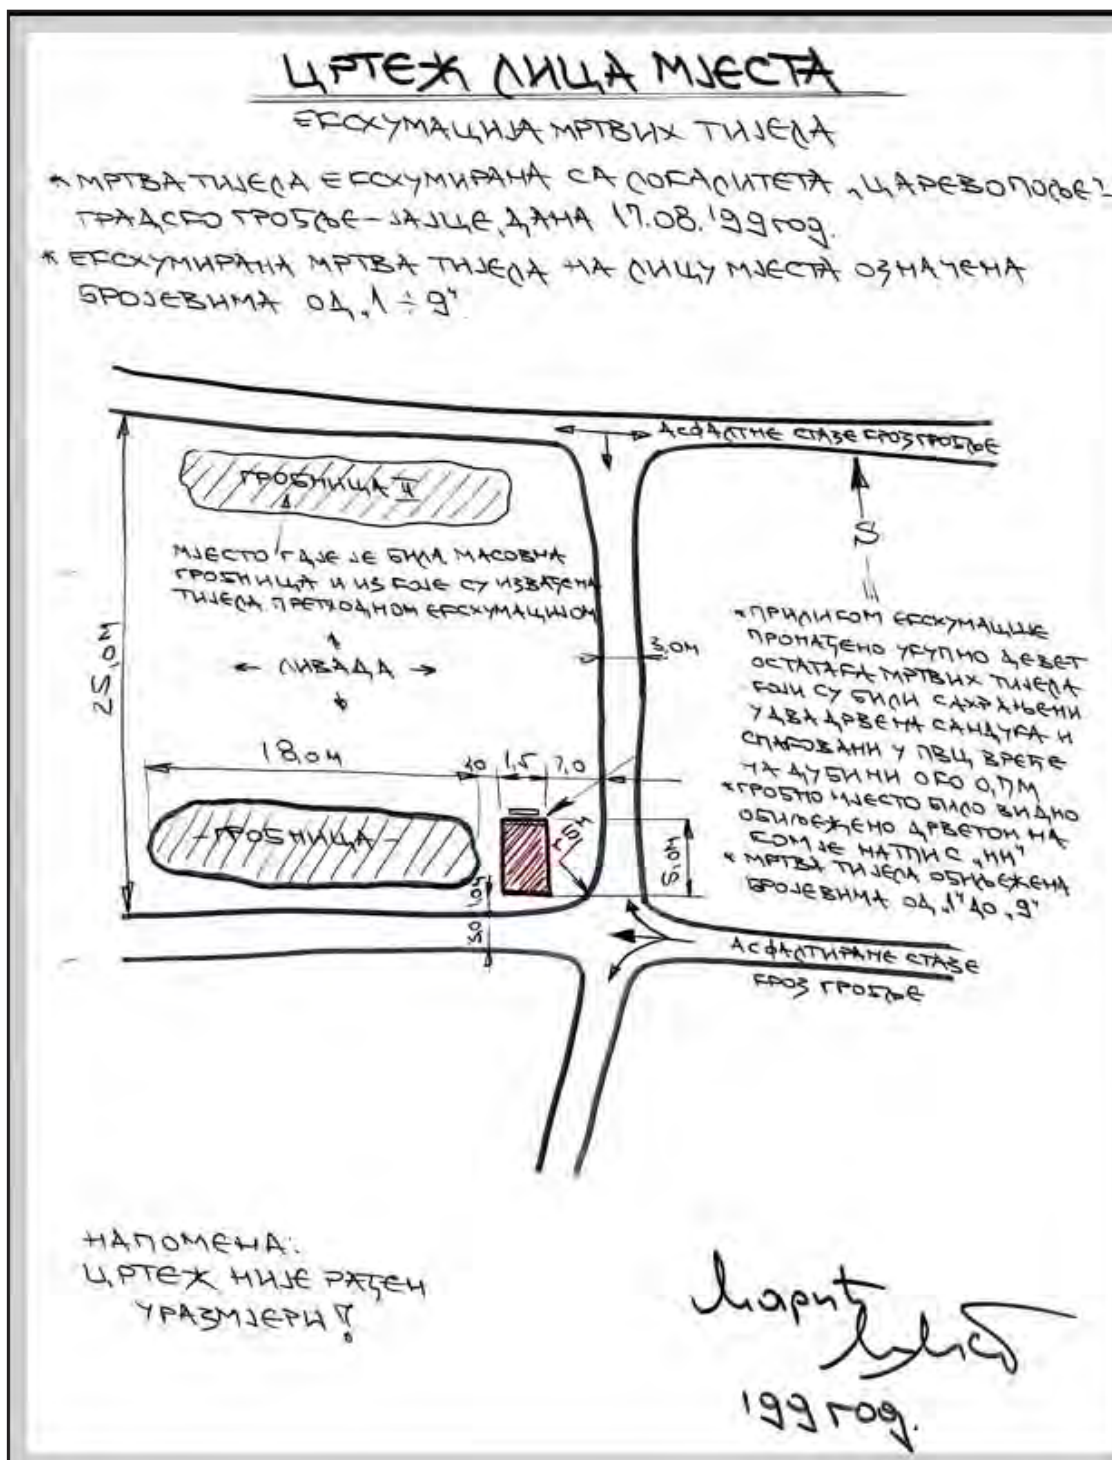 ЦРТЕЖ ЛИЦА МЈЕСТА
ЕКСХУМАЦИЈА МРТВИХ ТИЈЕЛА
* МРТВА ТИЈЕЛА ЕКСХУМИРАНА СА ЛОКАЛИТЕТА „ЦАРЕВО ПОЉЕ"-
ГРАДСКО ГРОБЉЕ-ЈАЈЦЕ, ДАНА 17.08.'99 год.
* ЕКСХУМИРАНА МРТВА ТИЈЕЛА НА ЛИЦУ МЈЕСТА ОЗНАЧЕНА
БРОЈЕВИМА ОД „1 ÷ 9"
АСФАЛТНЕ СТАЗЕ КРОЗ ГРОБЉЕ
ГРОБНИЦА II
S
МЈЕСТО ГДЈЕ ЈЕ БИЛА МАСОВНА
ГРОБНИЦА И ИЗ КОЈЕ СУ ИЗВАЂЕНА
ТИЈЕЛА ПРЕТХОДНОМ ЕКСХУМАЦИЈОМ
25,0М
ЛИВАДА
3,0М
* ПРИЛИКОМ ЕКСХУМАЦИЈЕ
ПРОНАЂЕНО УКУПНО ДЕВЕТ
ОСТАТАКА МРТВИХ ТИЈЕЛА
КОЈИ СУ БИЛИ САХРАЊЕНИ
У ДВА ДРВЕНА САНДУКА И
СПАКОВАНИ У ПВЦ ВРЕЋЕ
НА ДУБИНИ ОКО 0,7М
* ГРОБНО МЈЕСТО БИЛО ВИДНО
ОБИЉЕЖЕНО ДРВЕТОМ НА
КОМ ЈЕ НАТПИС „НН"
* МРТВА ТИЈЕЛА ОБИЉЕЖЕНА
БРОЈЕВИМА ОД „1" ДО „9"
18,0М
1,5
-ГРОБНИЦА-
5,0М
АСФАЛТИРАНЕ СТАЗЕ
КРОЗ ГРОБЉЕ
НАПОМЕНА:
ЦРТЕЖ НИЈЕ РАЂЕН
У РАЗМЈЕРИ!
Марић
'99 год.